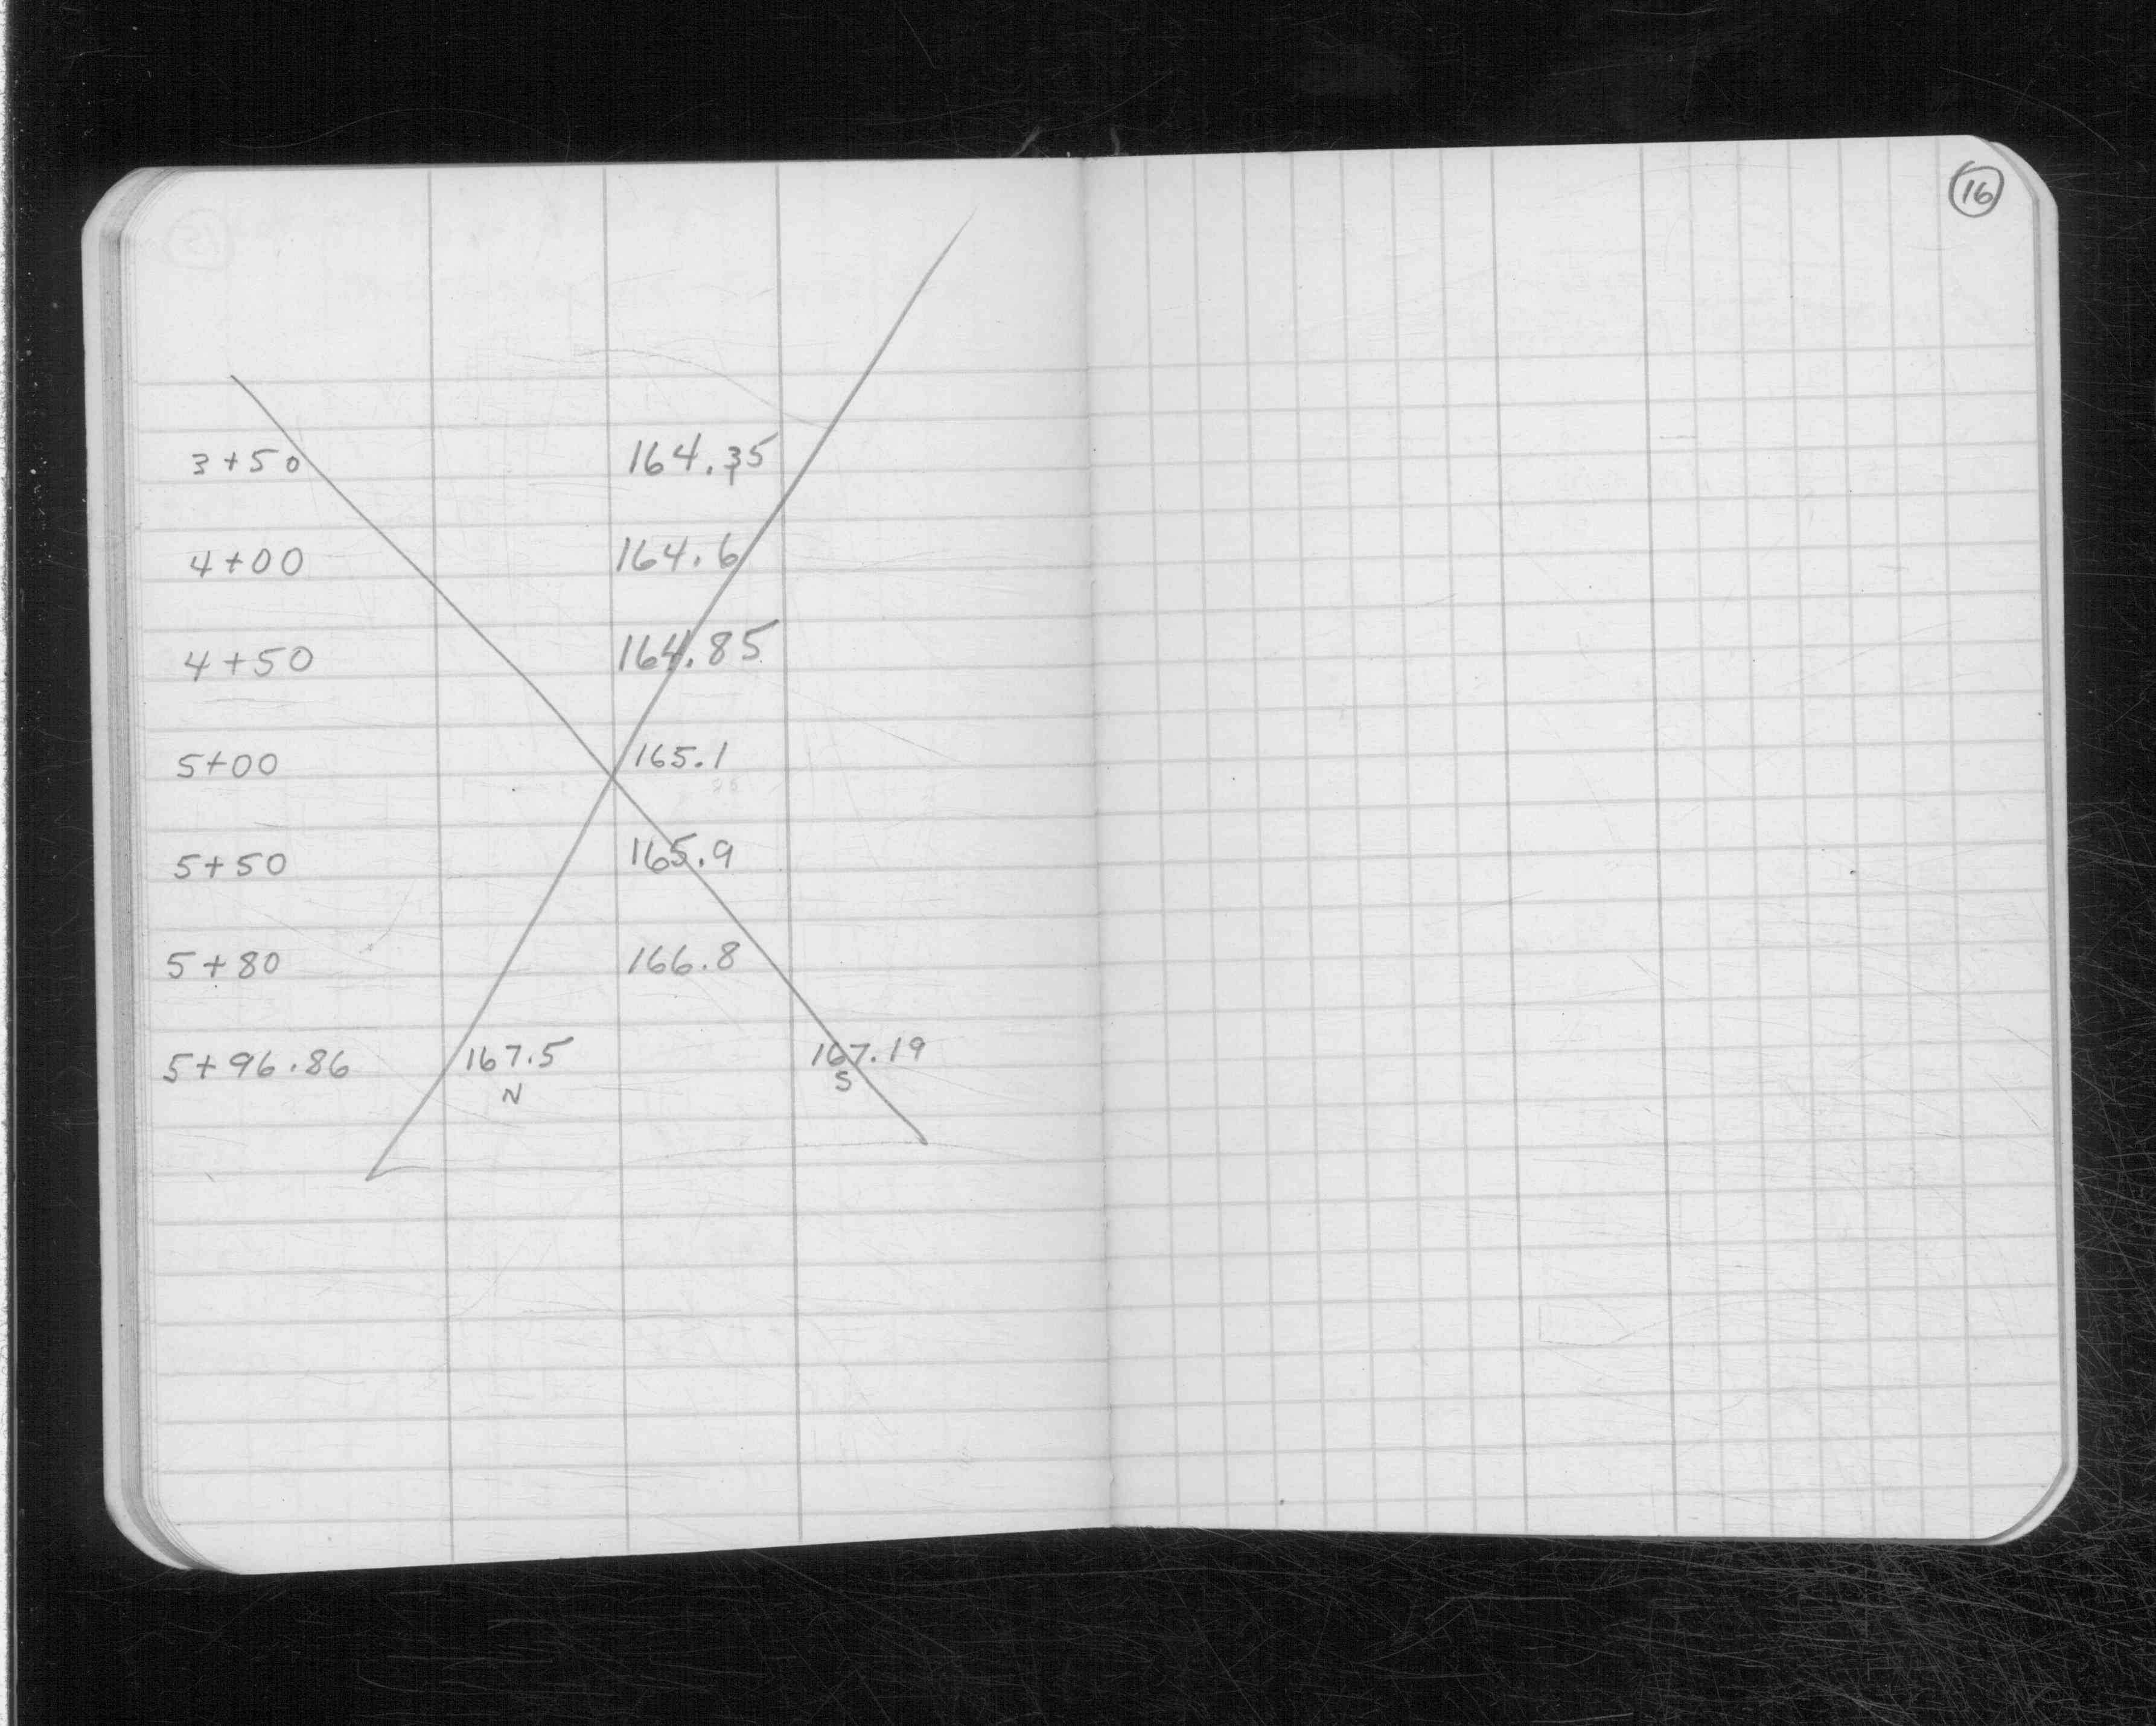 16
3+50 164.35
4+00 164.6
4+50 164.85
5+00 165.1
5+50 165.9
5+80 166.8
5+96.86 167.5 167.19
N S